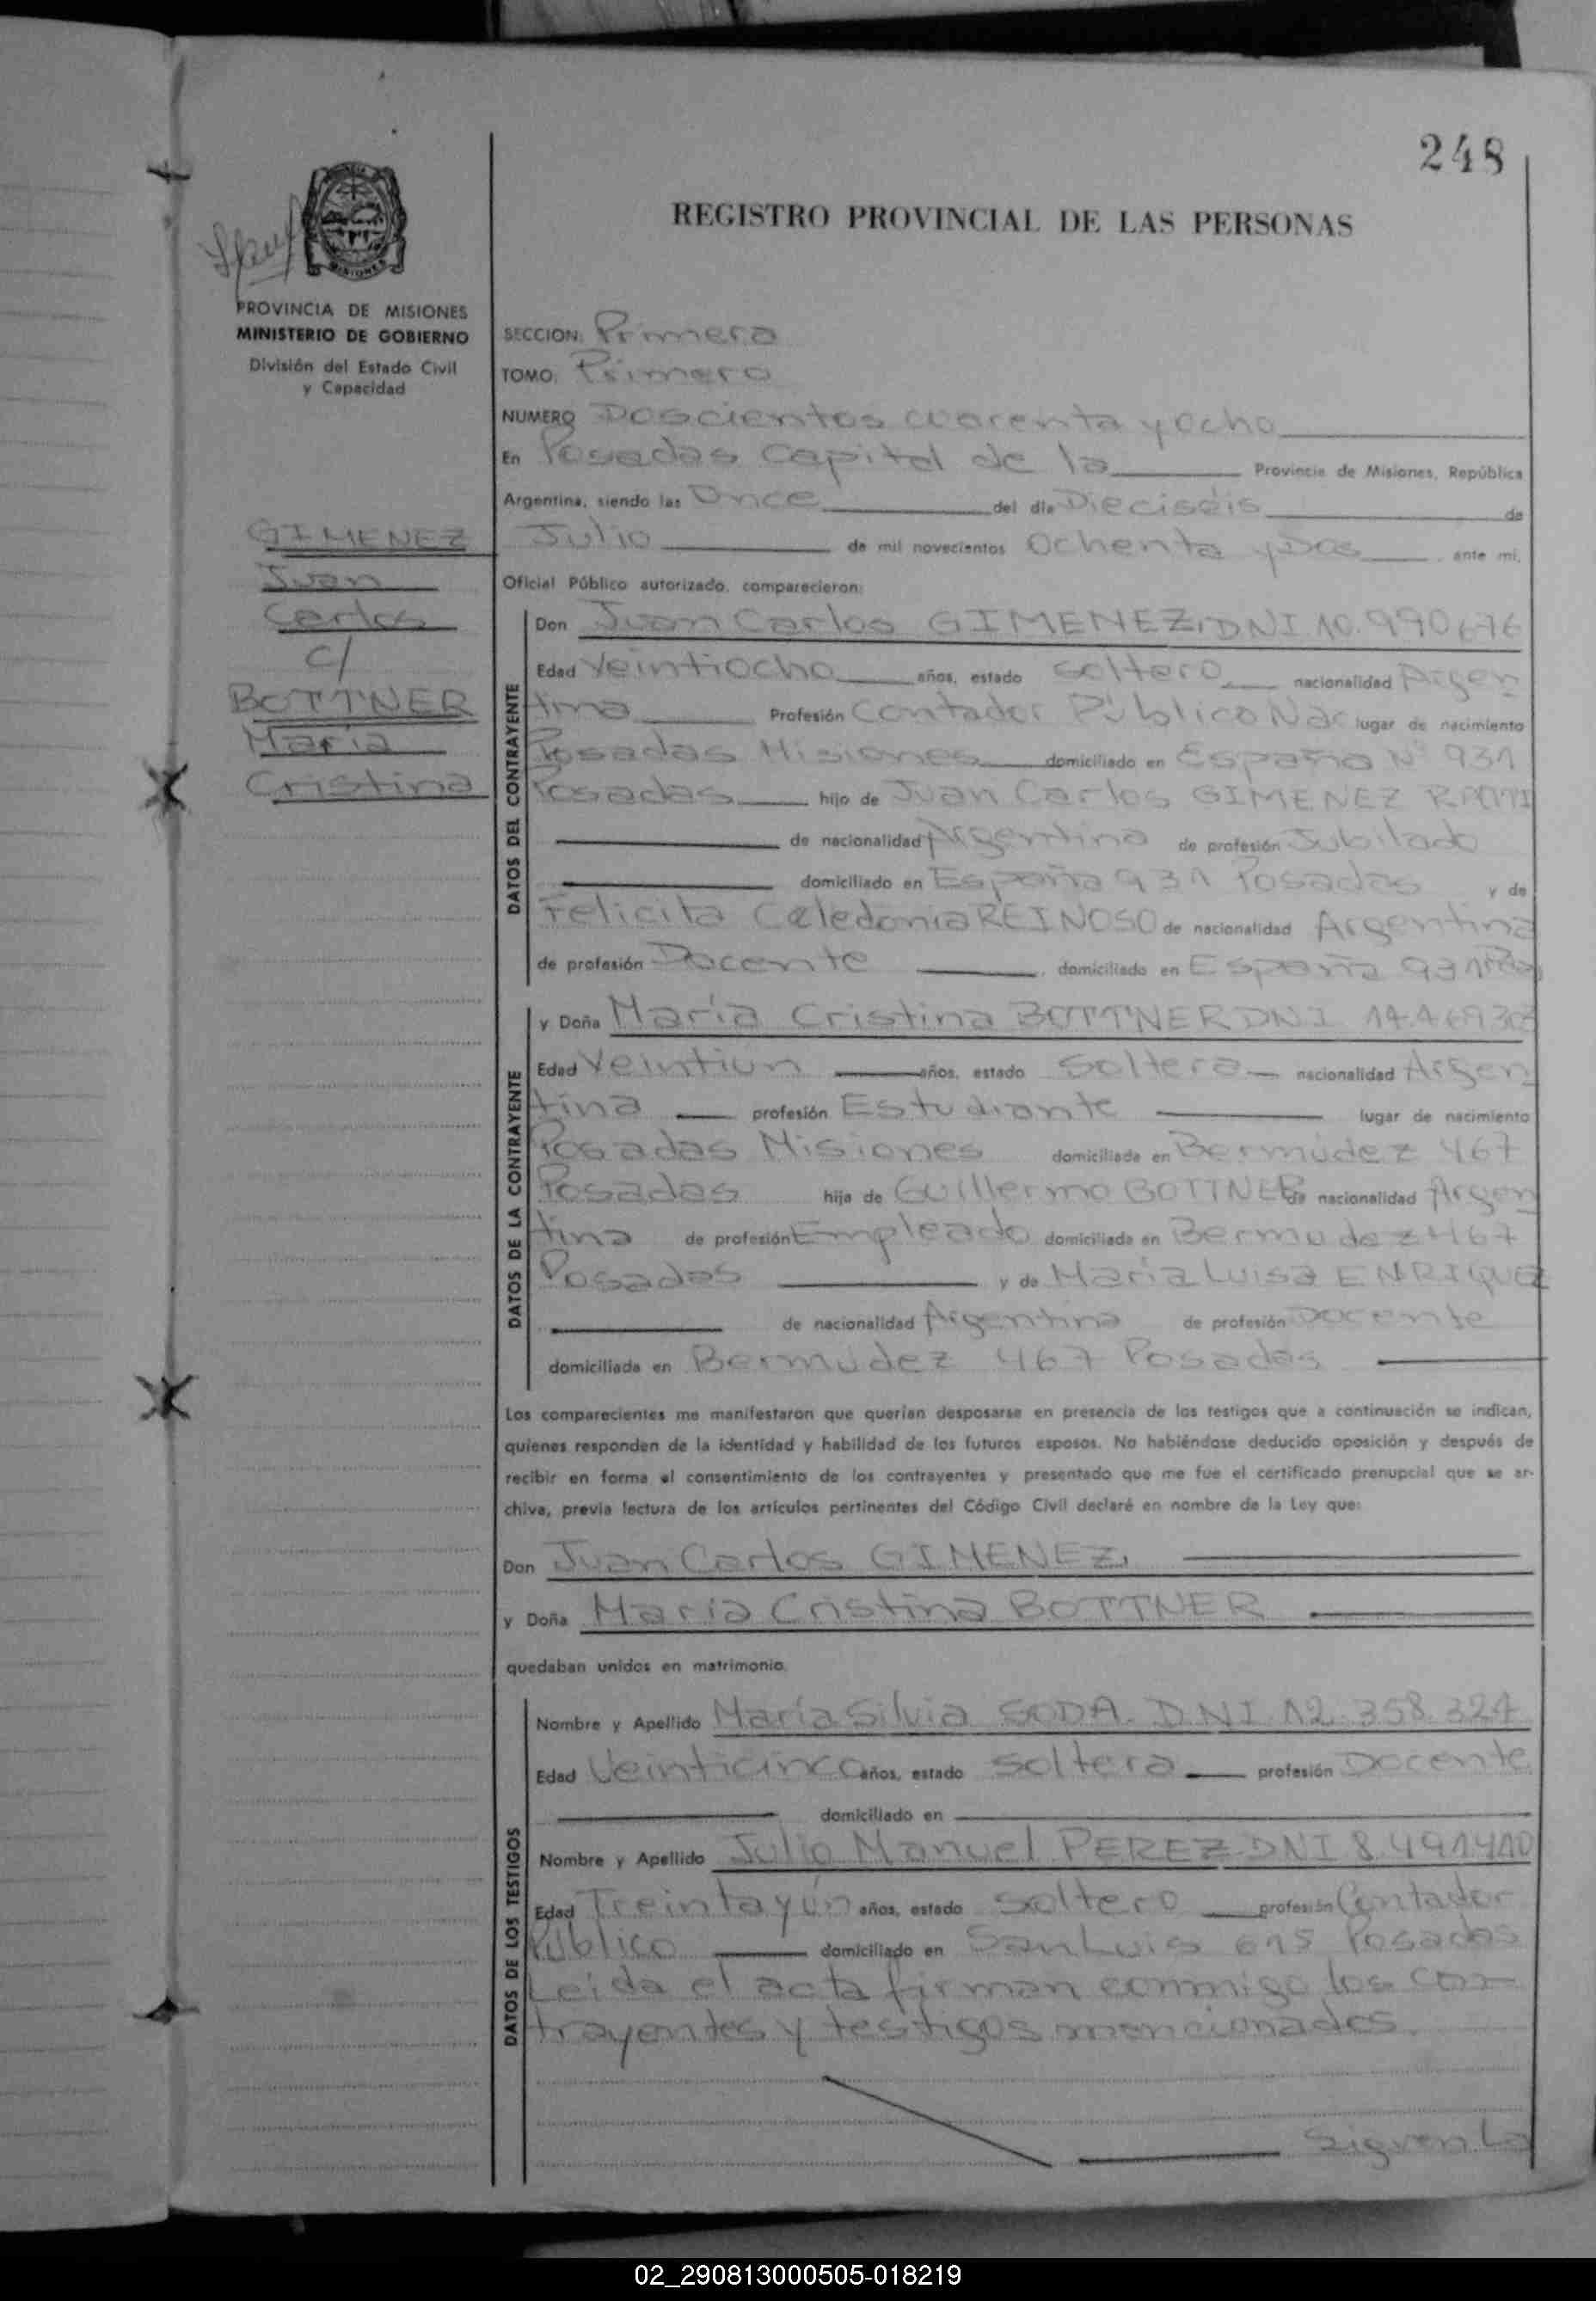 248
REGISTRO PROVINCIAL DE LAS PERSONAS
MISIONES
PROVINCIA DE MISIONES
MINISTERIO DE GOBIERNO
División del Estado Civil
y Capacidad
GIMENEZ
Juan
Carlos
c/
BOTTNER
María
Cristina
SECCION: Primera
TOMO: Primero
NUMERO Doscientos cuarenta y ocho
En Posadas Capital de la Provincia de Misiones, República
Argentina, siendo las Once del día Dieciséis de
Julio de mil novecientos Ochenta y Dos ante mí,
Oficial Público autorizado, comparecieron:
DATOS DEL CONTRAYENTE
Don Juan Carlos GIMENEZ, DNI 10.990.676
Edad Veintiocho años, estado soltero nacionalidad Argen
tina Profesión Contador Público Nac lugar de nacimiento
Posadas Misiones domiciliado en España Nº 931
Posadas hijo de Juan Carlos GIMENEZ
de nacionalidad Argentina de profesión Jubilado
domiciliado en España 931 Posadas y de
Felicita Celedonia REINOSO de nacionalidad Argentina
de profesión Docente domiciliado en España 931
DATOS DE LA CONTRAYENTE
y Doña María Cristina BOTTNER DNI 14.469.303
Edad Veintiun años, estado Soltera nacionalidad Argen
tina profesión Estudiante lugar de nacimiento
Posadas Misiones domiciliada en Bermúdez 467
Posadas hija de Guillermo BOTTNER de nacionalidad Argen
tina de profesión Empleado domiciliado en Bermudez 467
Posadas y de María Luisa ENRIQUEZ
de nacionalidad Argentina de profesión Docente
domiciliada en Bermudez 467 Posadas
Los comparecientes me manifestaron que querían desposarse en presencia de los testigos que a continuación se indican,
quienes responden de la identidad y habilidad de los futuros esposos. No habiéndose deducido oposición y después de
recibir en forma el consentimiento de los contrayentes y presentado que me fue el certificado prenupcial que se ar-
chiva, previa lectura de los artículos pertinentes del Código Civil declaré en nombre de la Ley que:
Don Juan Carlos GIMENEZ,
y Doña María Cristina BOTTNER
quedaban unidos en matrimonio.
DATOS DE LOS TESTIGOS
Nombre y Apellido María Silvia SODA. D.N.I. 12.358.324
Edad Veinticinco años, estado soltera profesión Docente
domiciliado en
Nombre y Apellido Julio Manuel PEREZ DNI 8.491.410
Edad Treinta y ún años, estado soltero profesión Contador
Público domiciliado en San Luis 615 Posadas
Leída el acta firman conmigo los con-
trayentes y testigos mencionados.
Siguen La
02_290813000505-018219